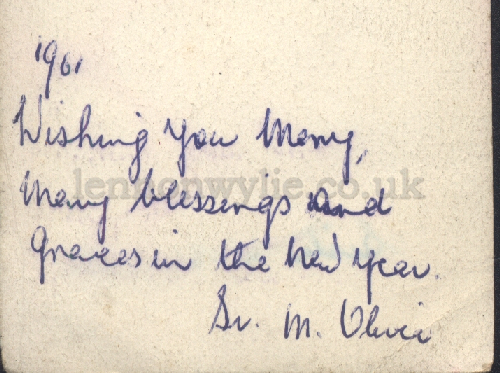 1961
Wishing you Many,
Many blessings and
Graces in the New Year.
Sr. M. Olivia
lennonwylie.co.uk